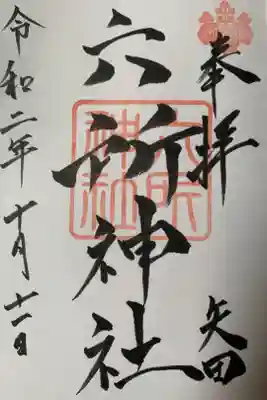 奉拝
矢田
六所神社
六所神社
令和二年十月十一日